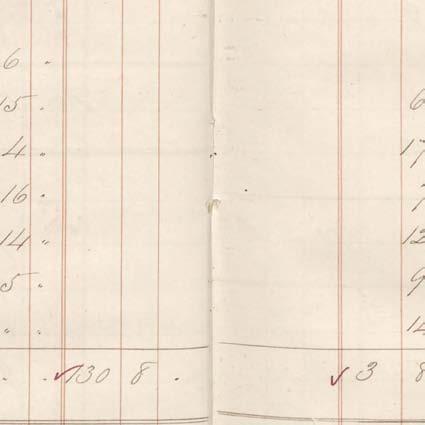 6 "
15 "                6
4 "                17
16 "                7
14 "                12
5 "                9
" "                14
" " ✓130 8 "        ✓3 8